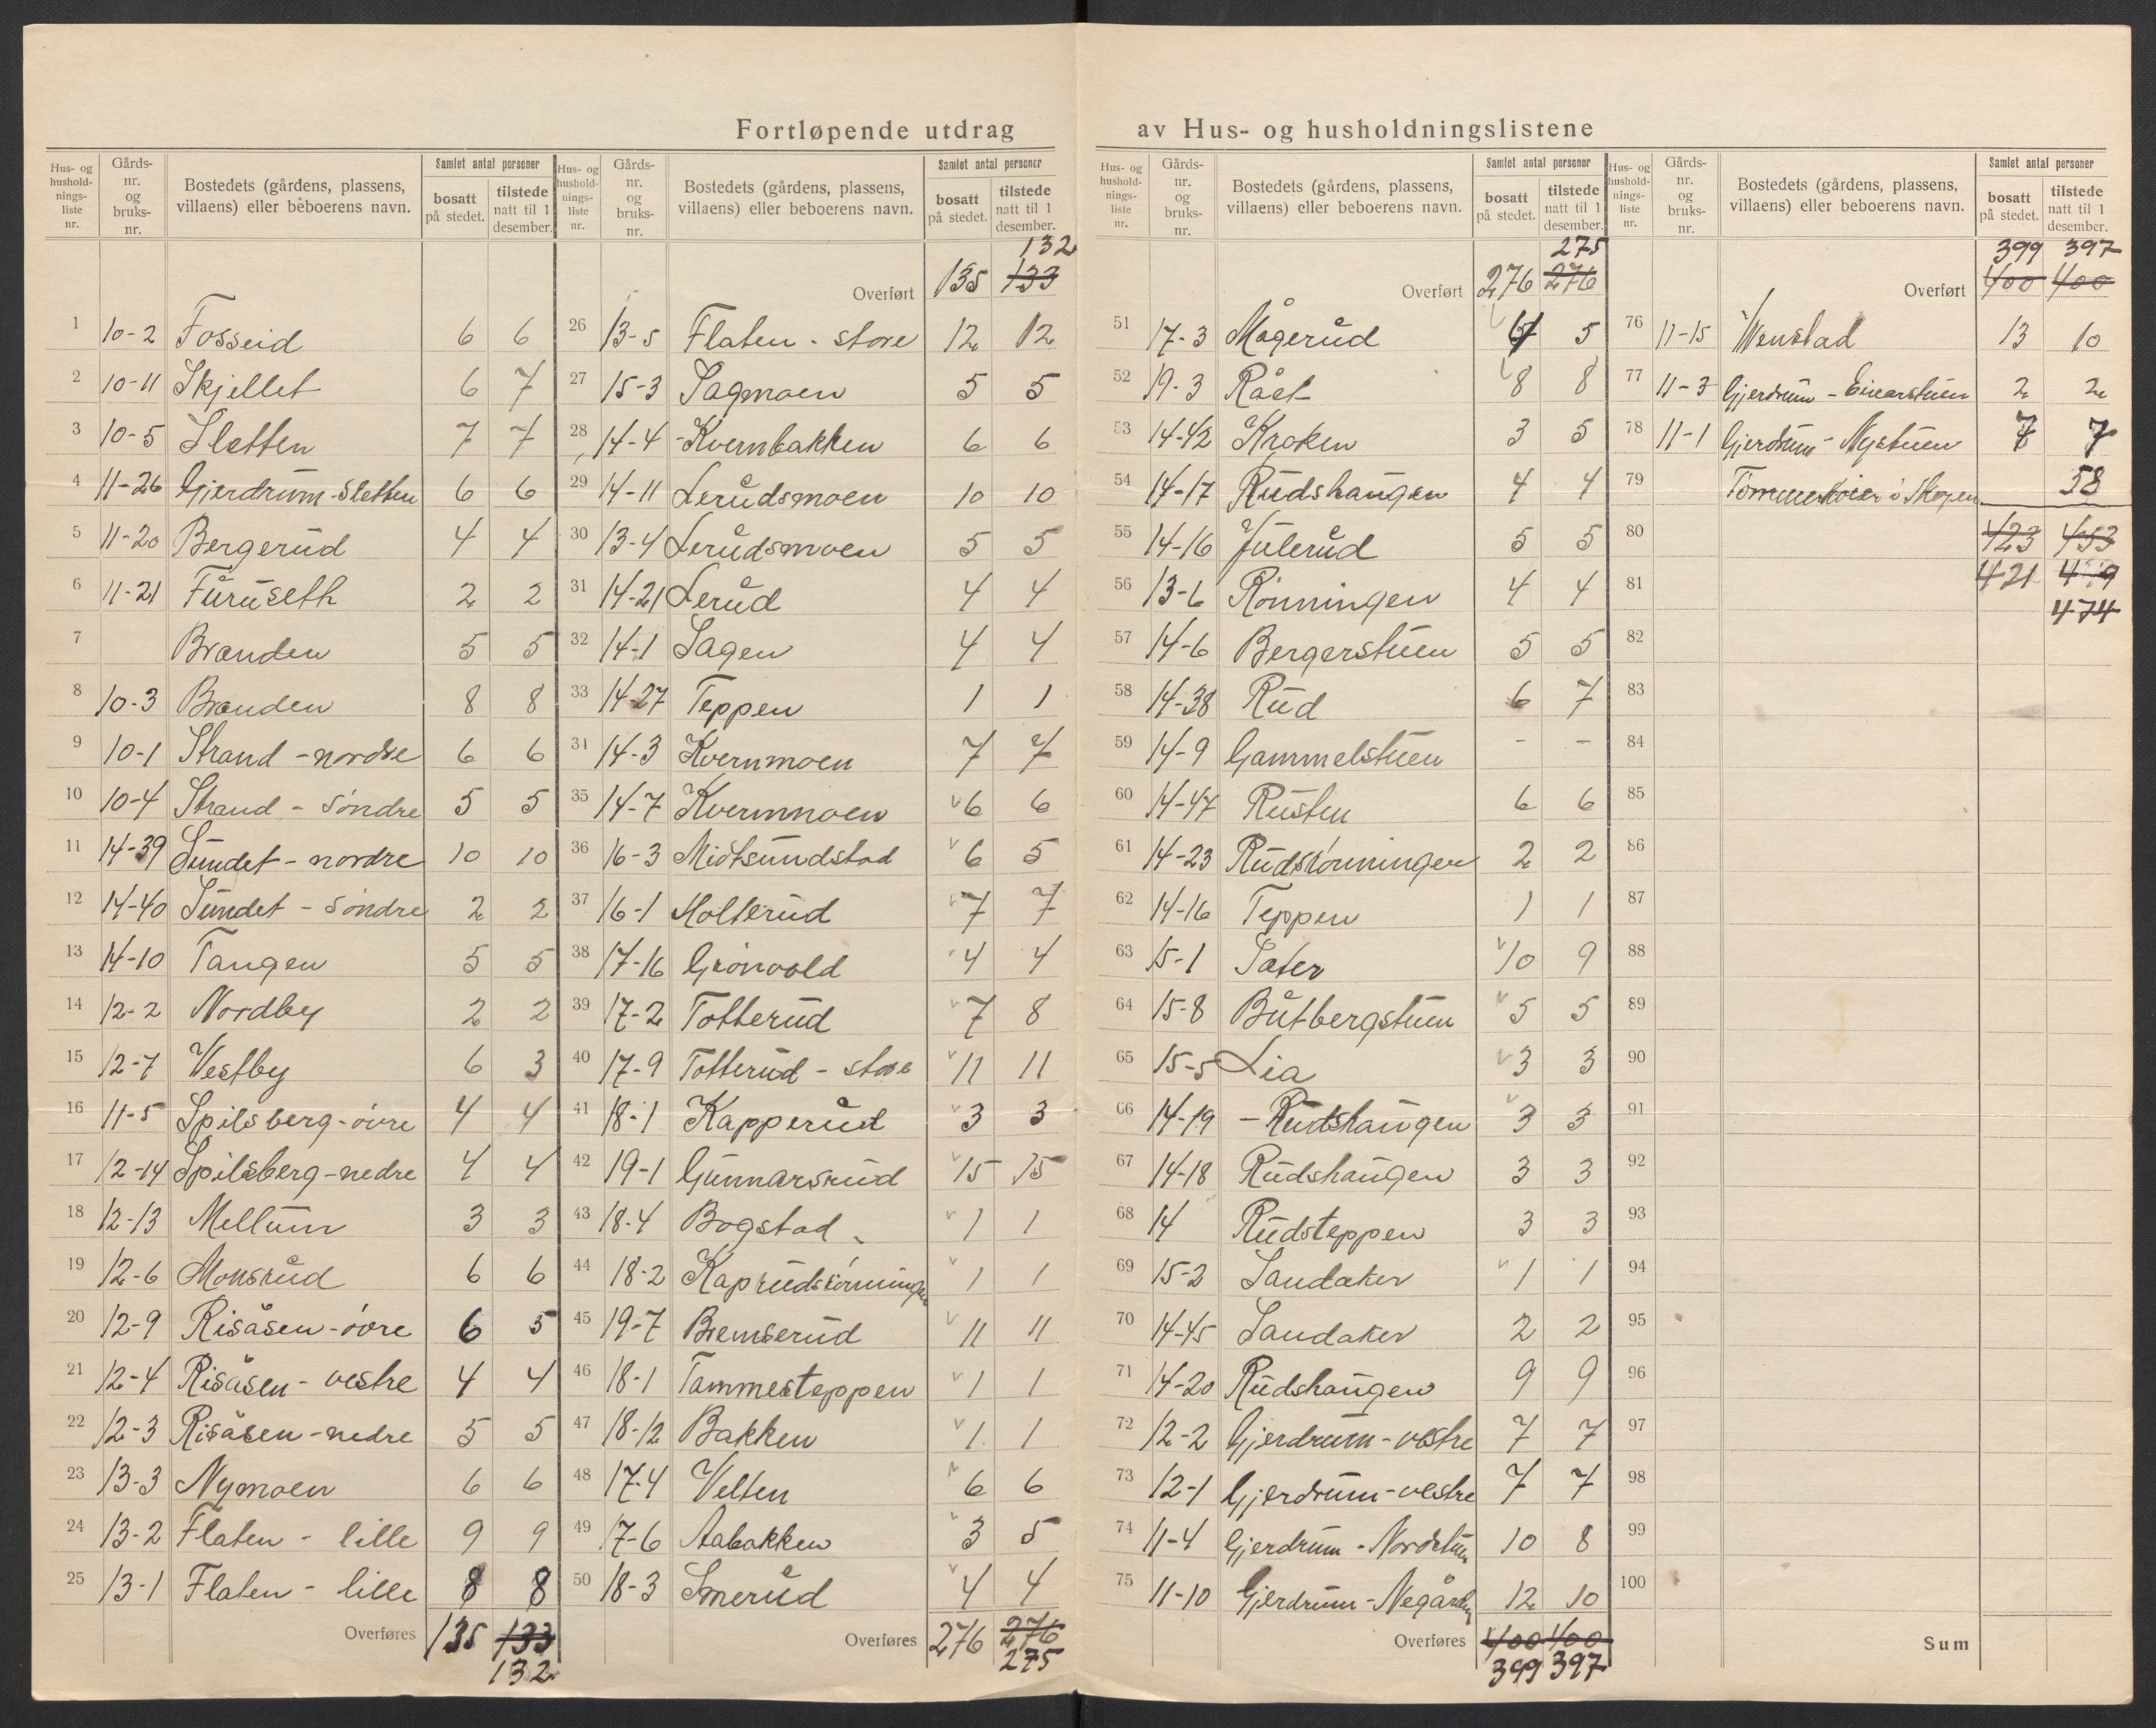 Fortløpende utdrag av Hus- og husholdningslistene
Hus- og hushold-nings-liste nr. Gårds-nr. og bruks-nr. Bostedets (gårdens, plassens, villaens) eller beboerens navn. Samlet antal personer bosatt på stedet. tilstede natt til 1 desember.
1 10-2 Fosseid 6 6
2 10-11 Skjellet 6 7
3 10-5 Sletten 7 7
4 11-26 Gjerdrum-Sletten 6 6
5 11-20 Bergerud 4 4
6 11-21 Furuseth 2 2
7 Brænden 5 5
8 10-3 Brænden 8 8
9 10-1 Strand - nordre 6 6
10 10-4 Strand - søndre 5 5
11 14-39 Sundet - nordre 10 10
12 14-40 Sundet - søndre 2 2
13 14-10 Tangen 5 5
14 12-2 Nordby 2 2
15 12-7 Vestby 6 3
16 11-5 Spilsberg-øvre 4 4
17 12-14 Spilsberg-nedre 4 4
18 12-13 Mellum 3 3
19 12-6 Monsrud 6 6
20 12-9 Risåsen-øvre 6 5
21 12-4 Risåsen - vestre 4 4
22 12-3 Risåsen - nedre 5 5
23 13-3 Nymoen 6 6
24 13-2 Flaten - lille 9 9
25 13-1 Flaten - lille 8 8
Overføres 135 133
132
Hus- og hushold-nings-liste nr. Gårds-nr. og bruks-nr. Bostedets (gårdens, plassens, villaens) eller beboerens navn. Samlet antal personer bosatt på stedet. tilstede natt til 1 desember.
132
Overført 135 133
26 13-5 Flaten - store 12 12
27 15-3 Sagmoen 5 5
28 14-4 Kvernbakken 6 6
29 14-11 Lerudsmoen 10 10
30 13-4 Lerudsmoen 5 5
31 14-21 Lerud 4 4
32 14-1 Sagen 4 4
33 14-27 Teppen 1 1
34 14-3 Kvernmoen 7 7
35 14-7 Kvernmoen 6 6
36 16-3 Midtsundstad 6 5
37 16-1 Molterud 7 7
38 17-16 Grønvold 4 4
39 17-2 Totterud 7 8
40 17-9 Totterud - store 11 11
41 18-1 Kapperud 3 3
42 19-1 Gunnarsrud 15 15
43 18-4 Bogstad 1 1
44 18-2 Kaprudsrønningen 1 1
45 19-7 Bremserud 11 11
46 18-1 Tammesteppen 1 1
47 18-12 Bakken 1 1
48 17-4 Velten 6 6
49 17-6 Aabakken 3 5
50 18-3 Smerud 4 4
Overføres 276 276
275
Hus- og hushold-nings-liste nr. Gårds-nr. og bruks-nr. Bostedets (gårdens, plassens, villaens) eller beboerens navn. Samlet antal personer bosatt på stedet. tilstede natt til 1 desember.
275
Overført 276 276
51 17-3 Mågerud 5
52 19-3 Råst 8 8
53 14-42 Kroken 3 5
54 14-17 Rudshaugen 4 4
55 14-16 Julerud 5 5
56 13-6 Rønningen 4 4
57 14-6 Bergerstuen 5 5
58 14-38 Rud 6 7
59 14-9 Gammelstuen - -
60 14-47 Rusten 6 6
61 14-23 Rudsrønningen 2 2
62 14-16 Teppen 1 1
63 15-1 Sater 10 9
64 15-8 Butbergstuen 5 5
65 15-5 Lia 3 3
66 14-19 - Rudshaugen 3 3
67 14-18 Rudshaugen 3 3
68 14 Rudsteppen 3 3
69 15-2 Sandaker 1 1
70 14-45 Sandaker 2 2
71 14-20 Rudshaugen 9 9
72 12-2 Gjerdrum-vestre 7 7
73 12-1 Gjerdrum-vestre 7 7
74 11-4 Gjerdrum - Nordstuen 10 8
75 11-10 Gjerdrum - Negården 12 10
Overføres 400 400
399 397
Hus- og hushold-nings-liste nr. Gårds-nr. og bruks-nr. Bostedets (gårdens, plassens, villaens) eller beboerens navn. Samlet antal personer bosatt på stedet. tilstede natt til 1 desember.
399 397
Overført 400 400
76 11-15 Wenstad 13 10
77 11-3 Gjerdrum - Einarstuen 2 2
78 11-1 Gjerdrum - Nystuen 7 7
79 Tømmerkoier i Skogen 58
80 423 453
81 421 479
474
82
83
84
85
86
87
88
89
90
91
92
93
94
95
96
97
98
99
100
Sum